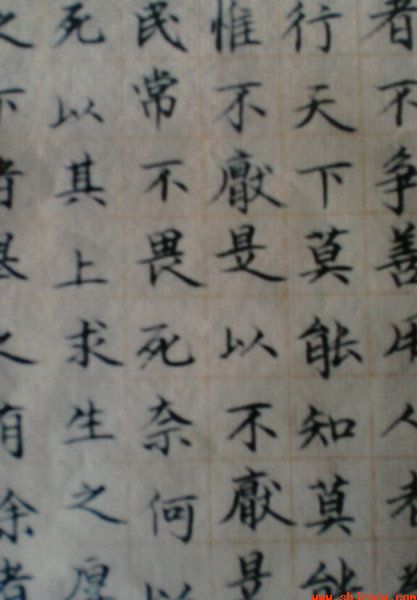 者不争善用人者
行天下莫能知莫能
惟不厭是以不厭是
民常不畏死奈何以
死以其上求生之厚
之下者之有餘者